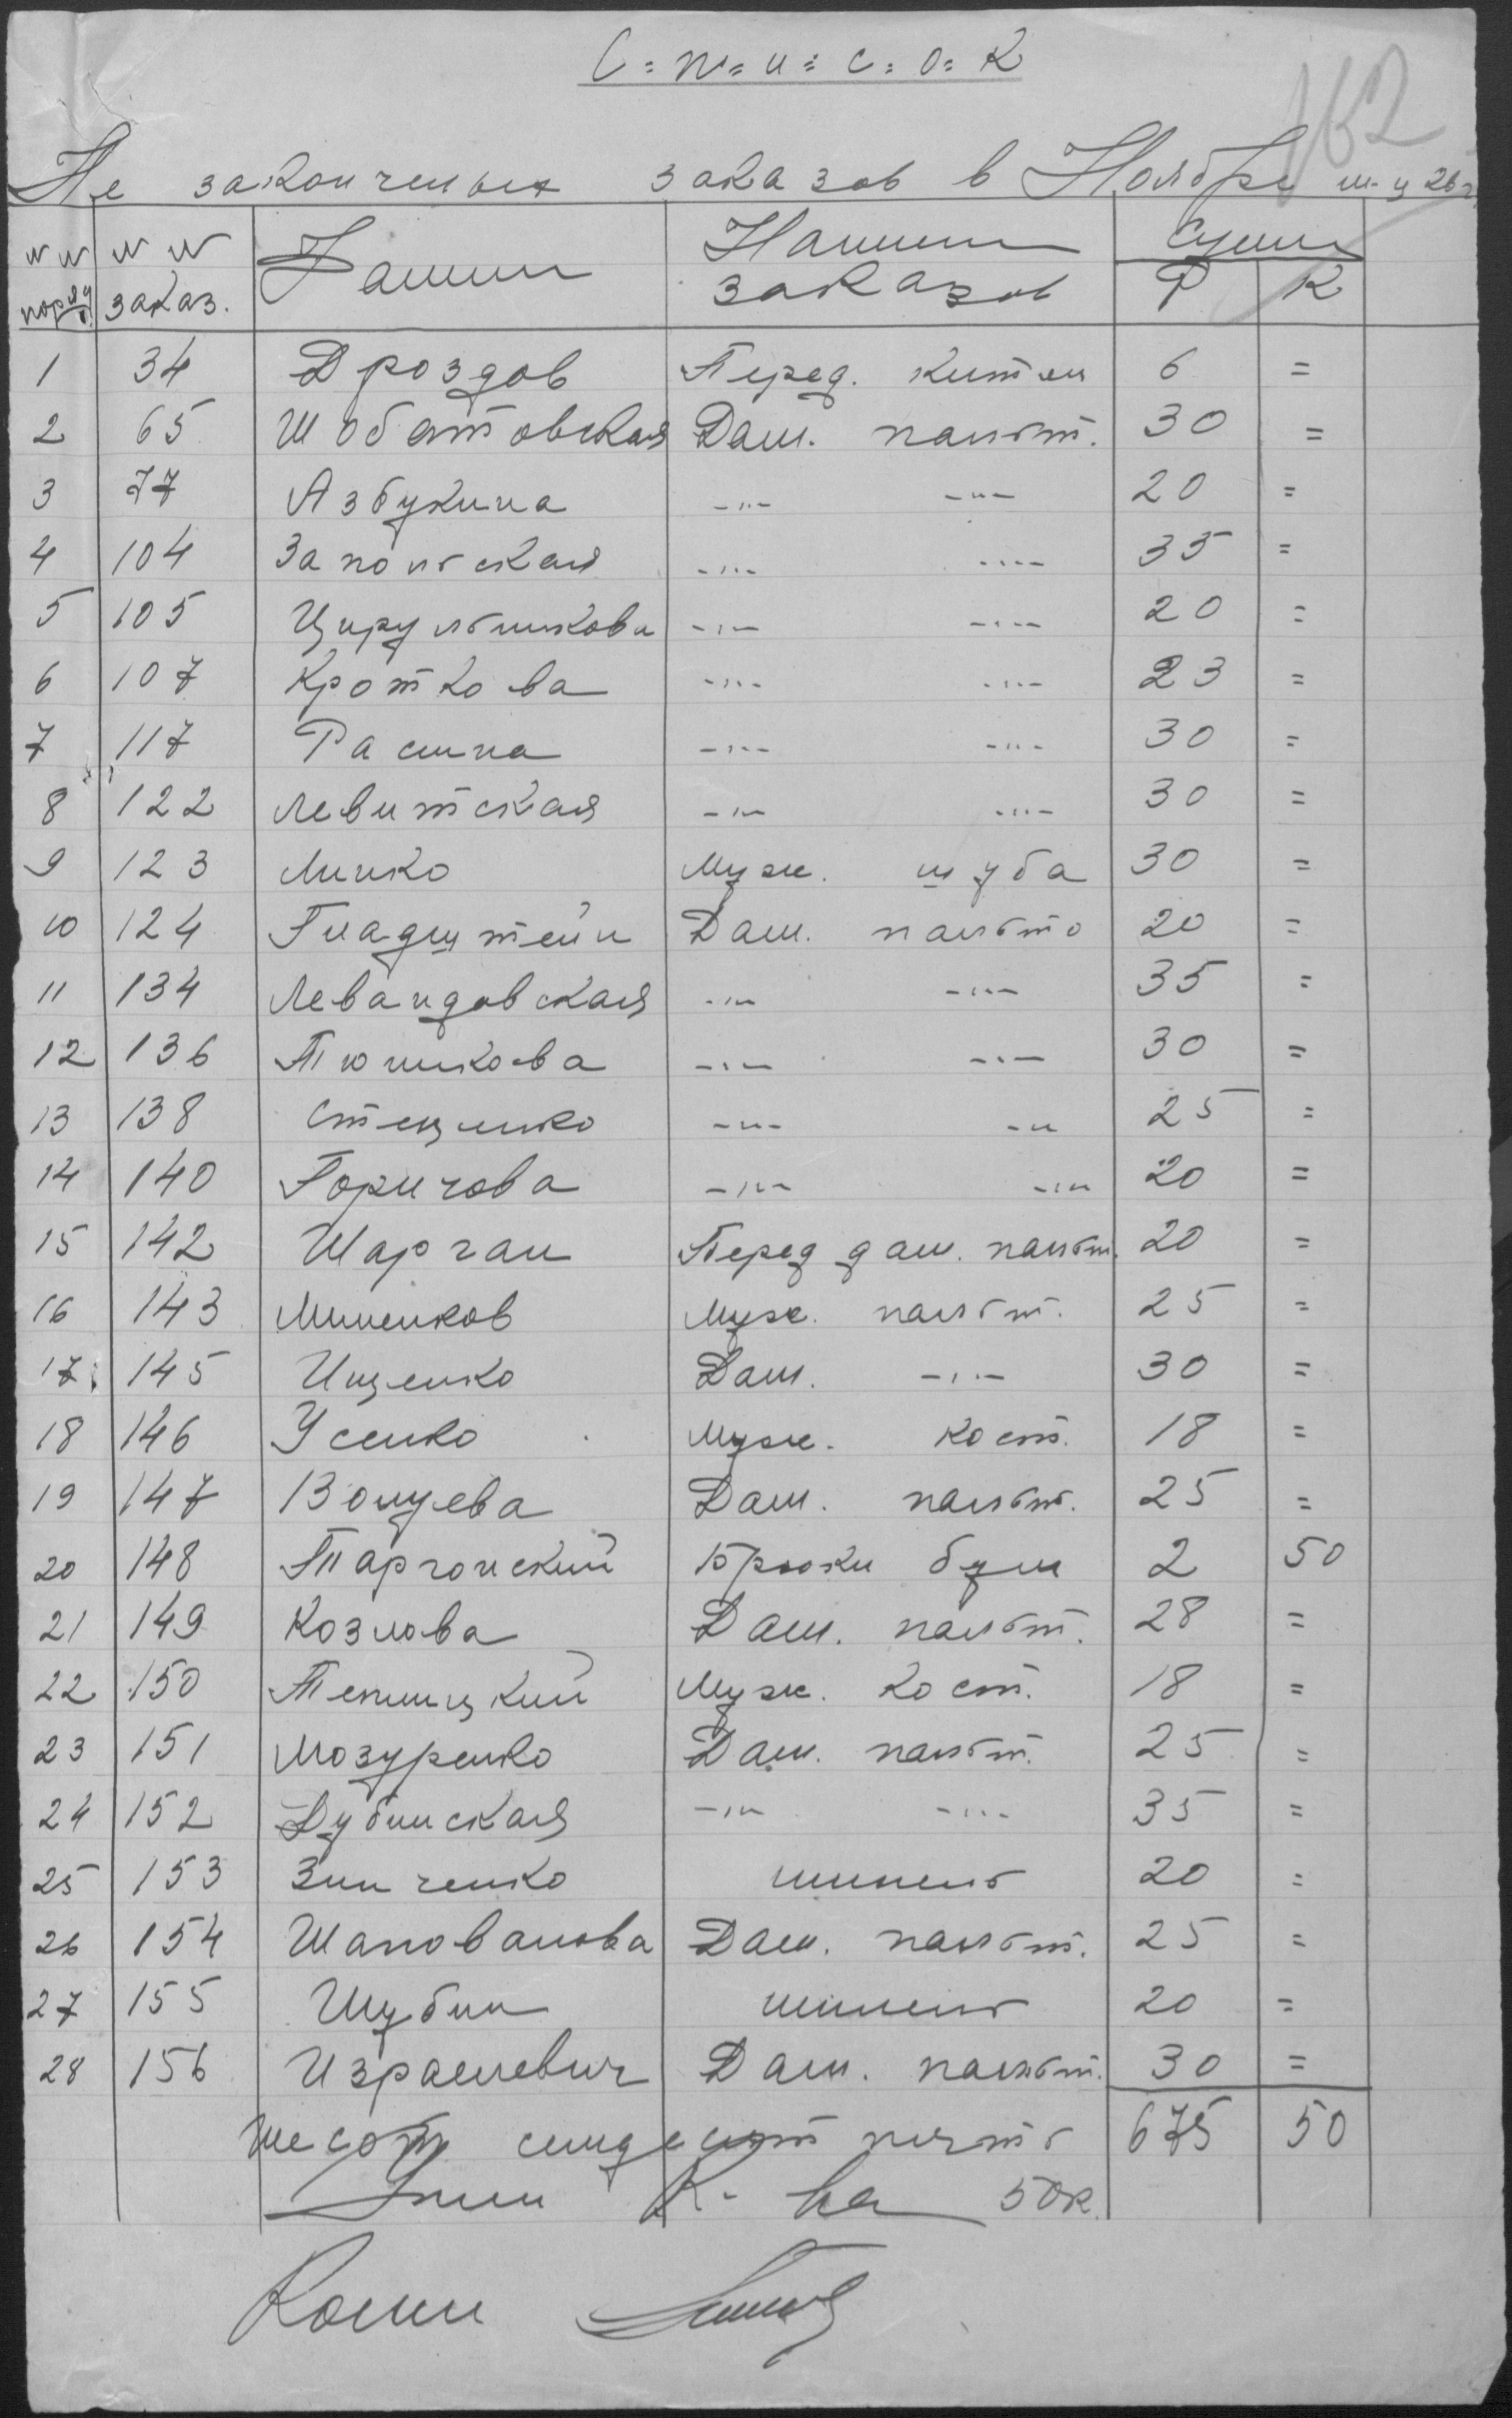 С=п=и=с=о=к
162
Не законченых заказов в Ноябре м-ц 26 г.
NN поряд. NN заказ. Фамил Наимен заказов Сумма Р К
1 34 Дроздов Перед. китель 6 =
2 65 Шобатовская Дам. пальт. 30 =
3 77 Азбукина -"- -"- 20 =
4 104 Запольская -"- -"- 35 =
5 105 Цирульникова -"- -"- 20 =
6 107 Кроткова -"- -"- 23 =
7 117 Расина -"- -"- 30 =
8 122 Левитская -"- -"- 30 =
9 123 Линко Муж. шуба 30 =
10 124 Гладштейн Дам. пальто 20 =
11 134 Левандовская -"- -"- 35 =
12 136 Тюникова -"- -"- 30 =
13 138 Стеценко -"- -"- 25 =
14 140 Горичова -"- -"- 20 =
15 142 Шарган Перед дам. пальт. 20 =
16 143 Миненков Муж. пальт. 25 =
17 145 Ищенко Дам. -"- 30 =
18 146 Усенко Муж. кост. 18 =
19 147 Волуева Дам. пальт. 25 =
20 148 Таргонский Брюки бум 2 50
21 149 Козлова Дам. пальт. 28 =
22 150 Теплицкий Муж. кост. 18 =
23 151 Мозуренко Дам. пальт. 25 =
24 152 Дубинская -"- -"- 35 =
25 153 Зинченко шинель 20 =
26 154 Шаповалова Дам. пальт. 25 =
27 155 Шубин шинель 20 =
28 156 Израилевич Дам. пальт. 30 =
Шесот семдесят пять 675 50
50к.